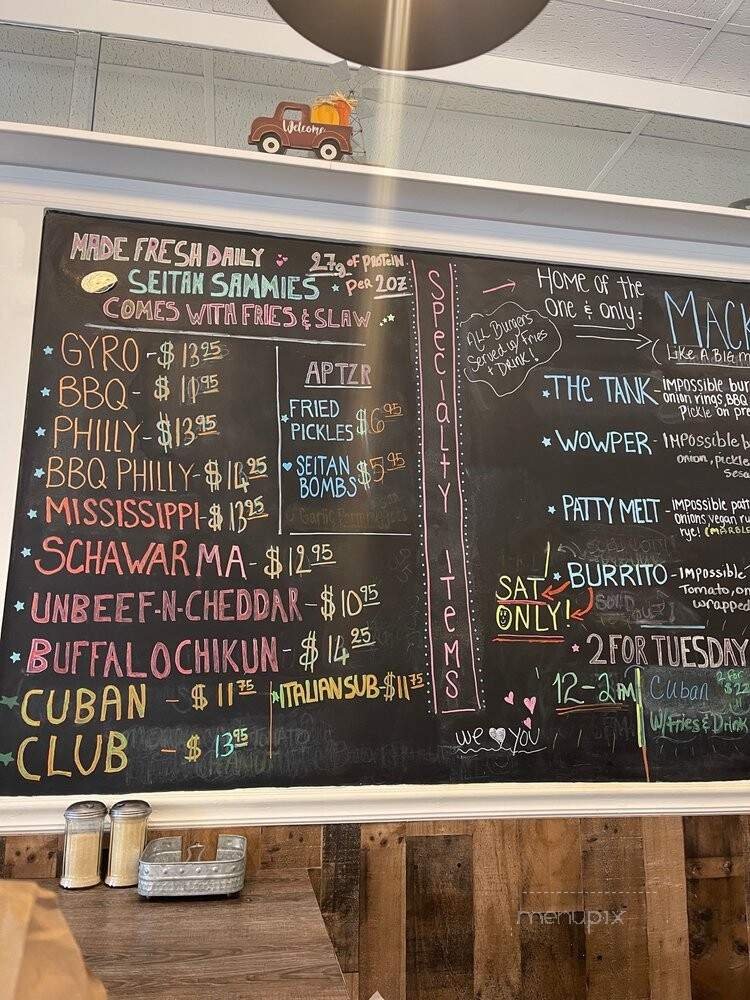 Welcome
MADE FRESH DAILY
27g OF PROTEIN
PER 2OZ
SEITAN SAMMIES
COMES WITH FRIES & SLAW
GYRO - $13 25
BBQ - $
PHILLY - $13 95
BBQ PHILLY - $
MISSISSIPPI - $
SCHAWARMA - $12 95
UNBEEF-N-CHEDDAR - $10 95
BUFFALO CHIKUN - $14 25
CUBAN - $11 75
ITALIAN SUB - $11 75
CLUB - $13 95
APTZR
FRIED
PICKLES $6 95
SEITAN
BOMBS $5 95
SPeciaLTY ITeMS
HOME OF THE
ONE & ONLY:
ALL Burgers
Served w/ Fries
& Drink!
MACK
(LIKE A BIG M
THE TANK - IMPOSSIBLE bur
onion rings, BBQ
Pickle on pre
WOWPER - IMPossible b
onion, pickle
Sesa
PATTY MELT - IMPOSSIBLE patt
onions vegan ru
rye! (MARBLE
SAT
ONLY!
BURRITO - IMPOSSIBLE
Tomato, on
wrapped
2 FOR TUESDAY
12-2PM
Cuban
2 FOR
$2
W/Fries & Drink
we YOU
menupix